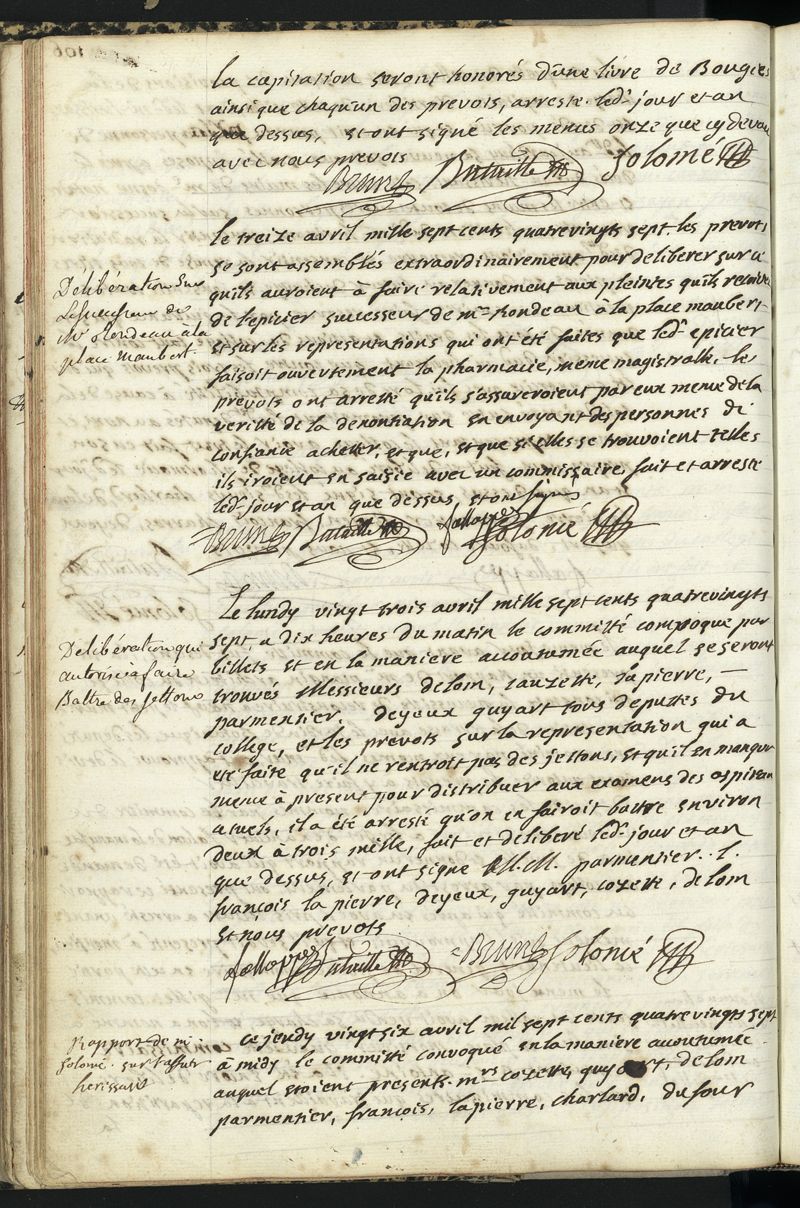 la capitation seront honorés d'une livre de Bougies
ainsi que chaqu'un des prevots, arresté. led. jour et an
que dessus, et ont signé les memes onze que cy devant
avec nous prevots
Brun Bataille Solomé
le treize avril mille sept cents quatrevingts sept. les prevots
se sont assemblés extraordinairement pour deliberer sur ce
Délibération sur
le successeur de
Mr Rondeau à la
place maubert
qu'ils auroient à faire relativement aux pleintes qu'ils recoivent
de l'epicier successeur de mr Rondeau à la place maubert
et sur les representations qui ont été faites que led. epicier
faisoit ouvertement la pharmacie, meme magistralle. les
prevots ont arresté qu'ils s'assureroient par eux meme de la
verité de la denontiation en envoyant des personnes de
confiance acheter, et que, et que si elles se trouvoient telles
ils iroient en saisie avec un commissaire, fait et arresté
led. jour et an que dessus, et ont signés
Brun Bataille Solomé
Le lundy vingt trois avril mille sept cents quatrevingts
sept, a dix heures du matin le committé compoque par
Deliberation qui
autorise a faire
Battre des Jettons
billets et en la maniere accoutumée auquel se seront
trouvés Messieurs Delom, cauzette, lapierre,
parmentier, deyeux guyart tous deputés du
college, et les prevots sur la representation qui a
eté faite qu'il ne rentroit pas des jettons, et qu'il en manquoit
meme à present pour distribuer aux examens des aspirans
actuels, il a été arresté qu'on en fairoit battre environ
deux à trois mille, fait et deliberé led. jour et an
que dessus, et ont signé M.M. parmentier.
françois la pierre, deyeux, guyart, cozette, delom
et nous prevots
Bataille Brun Solomé
ce jeudy vingt six avril mil sept cents quatrevingts sept
Rapport de mr
Solomé. sur l'affaire
herissant
à midy le committé convoqué en la maniere accoutumée
auquel etoient presents. mrs cozette, guyart, delom
parmentier, françois, lapierre, charlard, dufour